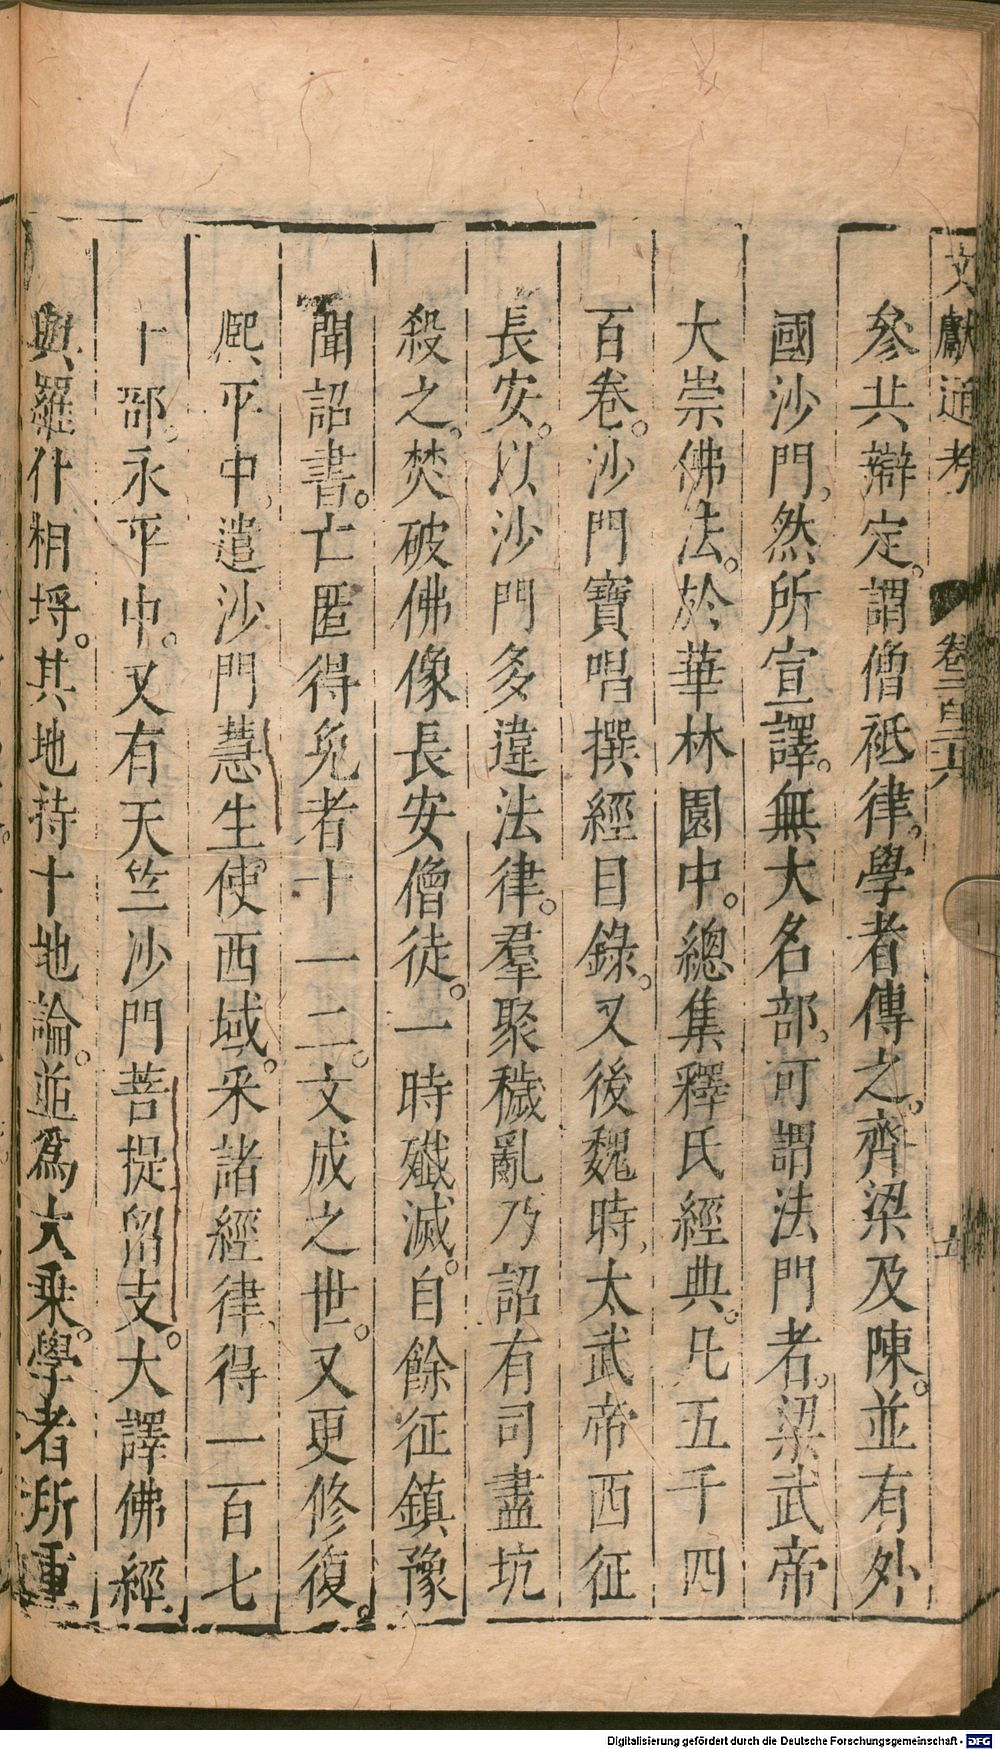 文獻通考 卷二百二十六 五
參共辯定。謂僧祗律。學者傳之。齊梁及陳。並有外
國沙門。然所宣譯。無大名部。可謂法門者。梁武帝
大崇佛法。於華林園中。總集釋氏經典。凡五千四
百卷。沙門寶唱撰經目錄。又後魏時。太武帝西征
長安。以沙門多違法律。羣聚穢亂乃詔有司盡坑
殺之。焚破佛像長安僧徒。一時殲滅。自餘征鎮豫
聞詔書。亡匿得免者十一二。文成之世。又更修復。
熈平中。遣沙門慧生使西域。采諸經律。得一百七
十部。永平中。又有天竺沙門菩提畱支。大譯佛經
與羅什相埒。其地持十地論。並爲大乗。學者所重
Digitalisierung gefördert durch die Deutsche Forschungsgemeinschaft - DFG